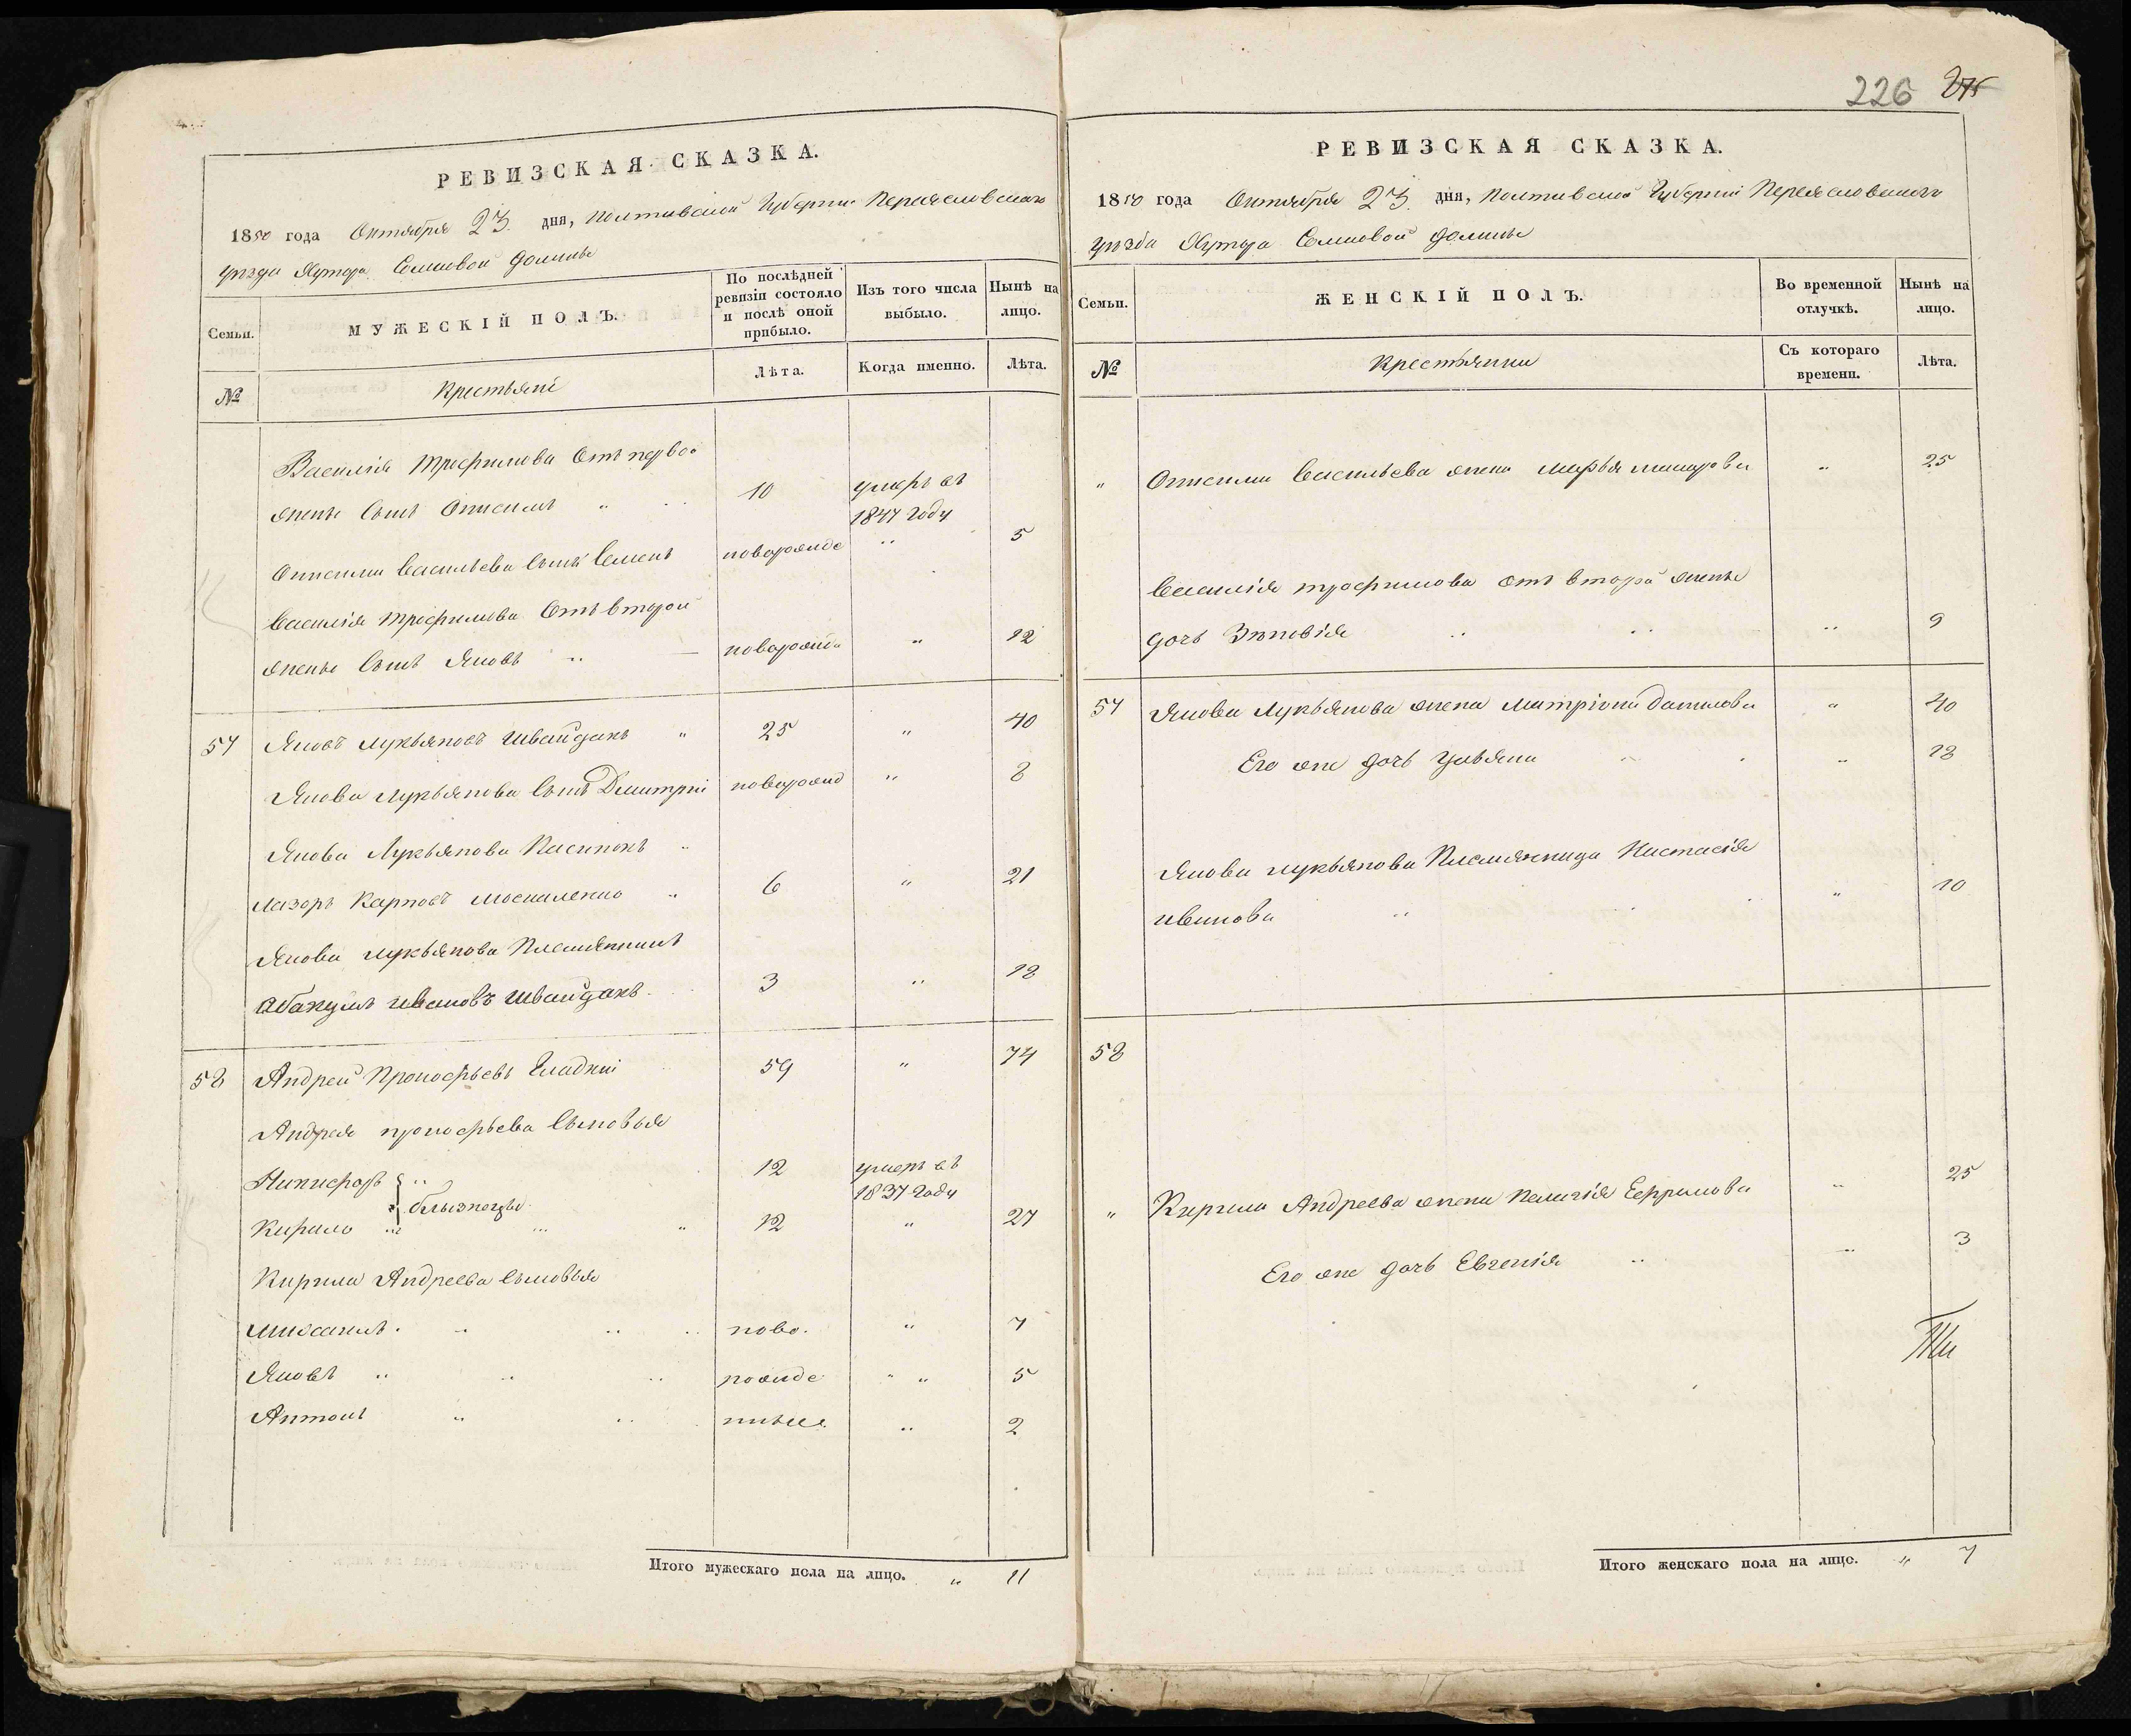 РЕВИЗСКАЯ СКАЗКА.
1850 года Октября 23. дня, Полтавской Губернии Переясловскаго
уезда Хутора Сомковой Долины
Семьи.
МУЖЕСКІЙ ПОЛЪ.
По послѣдней ревизіи состояло и послѣ оной прибыло.
Изъ того числа выбыло.
Нынѣ на лицо.
№
Крестьяне
Лѣта.
Когда именно.
Лѣта.
Василія Трофимова Отъ перво
жены Сынъ Онисимъ " 10 умеръ въ
1847 году
Онисима Васильева Сынъ Семенъ новорожде " 5
Василія Трофимова Отъ второй
жены Сынъ Яковъ " новорожд " 12
57 Яковъ Лукьяновъ Швайдакъ " 25 " 40
Якова Лукьянова Сынъ Дмитрій новорожд " 8
Якова Лукьянова Пасинокъ "
Лазоръ Карповъ Москаленко " 6 " 21
Якова Лукьянова Племянникъ
Абакумъ Ивановъ Швайдакъ 3 " 18
58 Андрей Прокофьевъ Гладкій 59 " 74
Андрея Прокофьева Сыновья
Никифоръ " 12 умеръ въ
близнецы 1837 году
Кирило " " 12 " 27
Кирила Андреева Сыновья
Михаилъ " ново. " 7
Яковъ " рожде " 5
Антонъ " нные " 2
Итого мужескаго пола на лицо. " 11
226 275
РЕВИЗСКАЯ СКАЗКА.
1850 года Октября 23. дня, Полтавской Губерніи Переясловскаго
уезда Хутора Сомковой Долины
Семьи.
ЖЕНСКІЙ ПОЛЪ.
Во временной отлучкѣ.
Нынѣ на лицо.
№
Крестьянки
Съ котораго времени.
Лѣта.
" Онисима Васильева жена Марья Макарова " 25
Василія Трофимова отъ второй жены
дочь Зѣновія " " 9
57 Якова Лукьянова жена Матріона Данилова " 40
Его же дочь Ульяна " 18
Якова Лукьянова Племянница Настасія
Иванова " " 10
58
" Кирила Андреева жена Пелагія Ефримова " 25
Его же дочь Евгенія " " 3
Итого женскаго пола на лицо. " 7